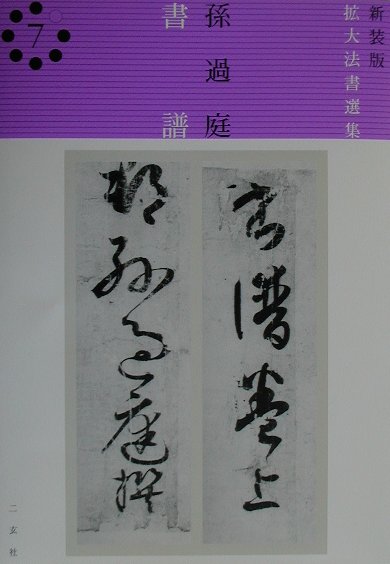 新装版
拡大法書選集
孫過庭
書譜
7
書譜卷上
郡孫過庭撰
二玄社